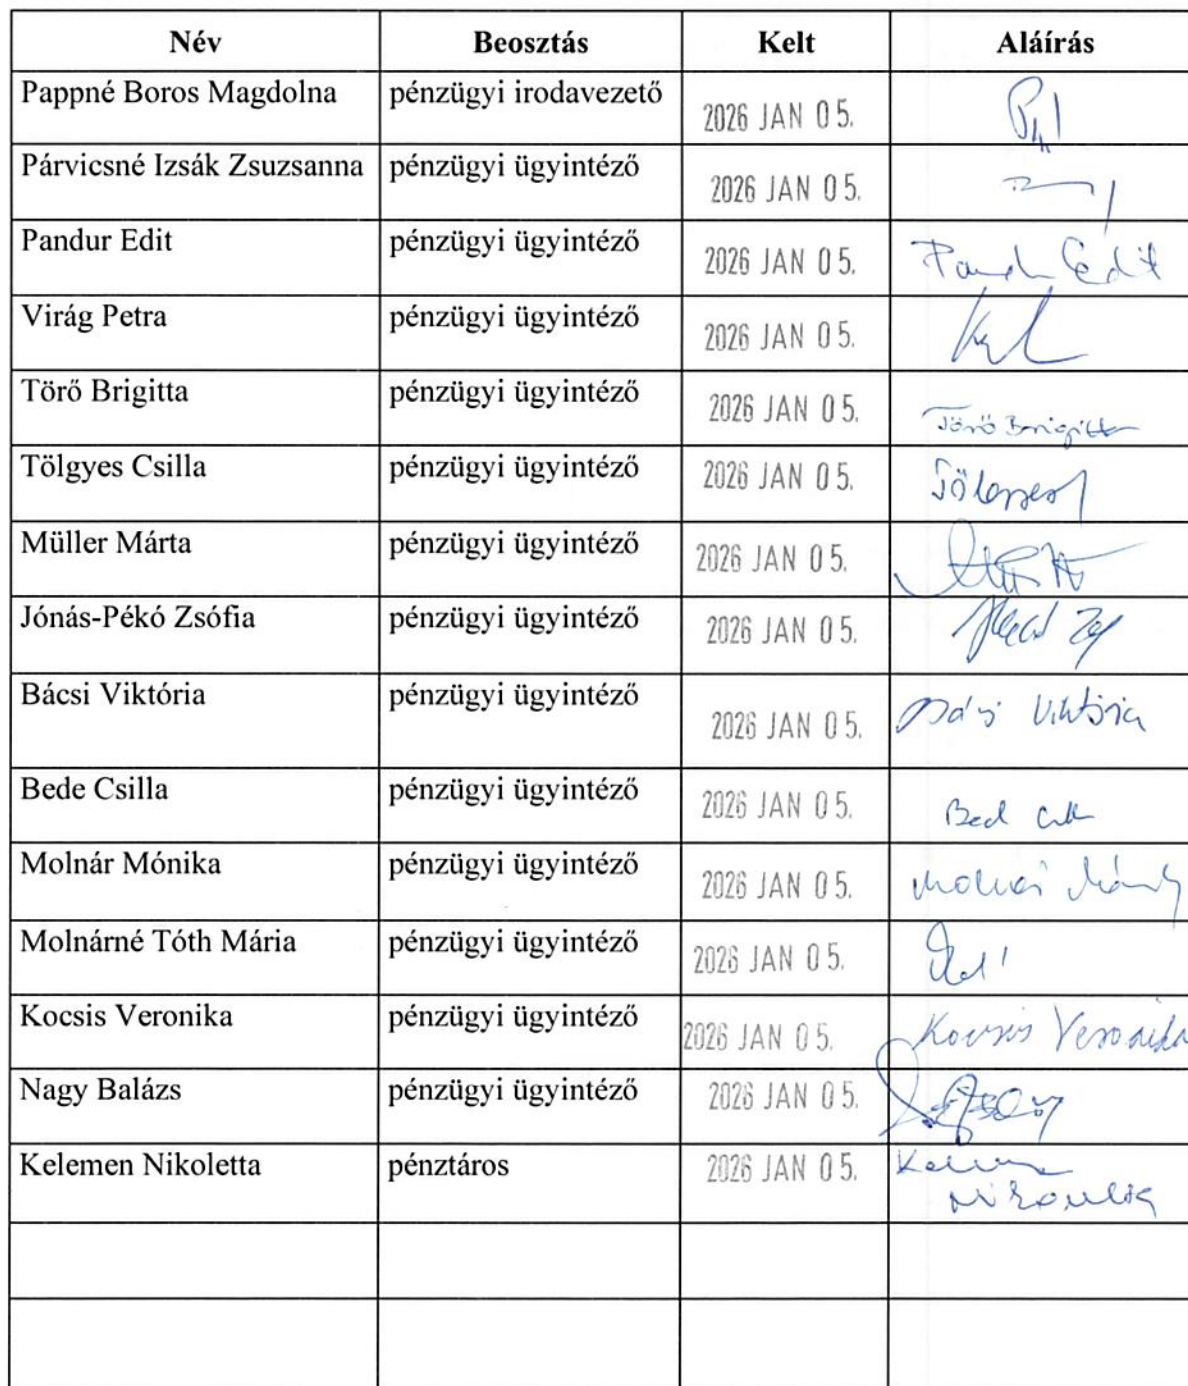 Név Beosztás Kelt Aláírás
Pappné Boros Magdolna pénzügyi irodavezető 2026 JAN 05.
Párvicsné Izsák Zsuzsanna pénzügyi ügyintéző 2026 JAN 05.
Pandur Edit pénzügyi ügyintéző 2026 JAN 05. Pandur Edit
Virág Petra pénzügyi ügyintéző 2026 JAN 05.
Törő Brigitta pénzügyi ügyintéző 2026 JAN 05. Törő Brigitta
Tölgyes Csilla pénzügyi ügyintéző 2026 JAN 05.
Müller Márta pénzügyi ügyintéző 2026 JAN 05.
Jónás-Pékó Zsófia pénzügyi ügyintéző 2026 JAN 05.
Bácsi Viktória pénzügyi ügyintéző 2026 JAN 05. Bácsi Viktória
Bede Csilla pénzügyi ügyintéző 2026 JAN 05.
Molnár Mónika pénzügyi ügyintéző 2026 JAN 05. Molnár
Molnárné Tóth Mária pénzügyi ügyintéző 2026 JAN 05.
Kocsis Veronika pénzügyi ügyintéző 2026 JAN 05. Kocsis Veronika
Nagy Balázs pénzügyi ügyintéző 2026 JAN 05.
Kelemen Nikoletta pénztáros 2026 JAN 05. Kelemen
Nikoletta